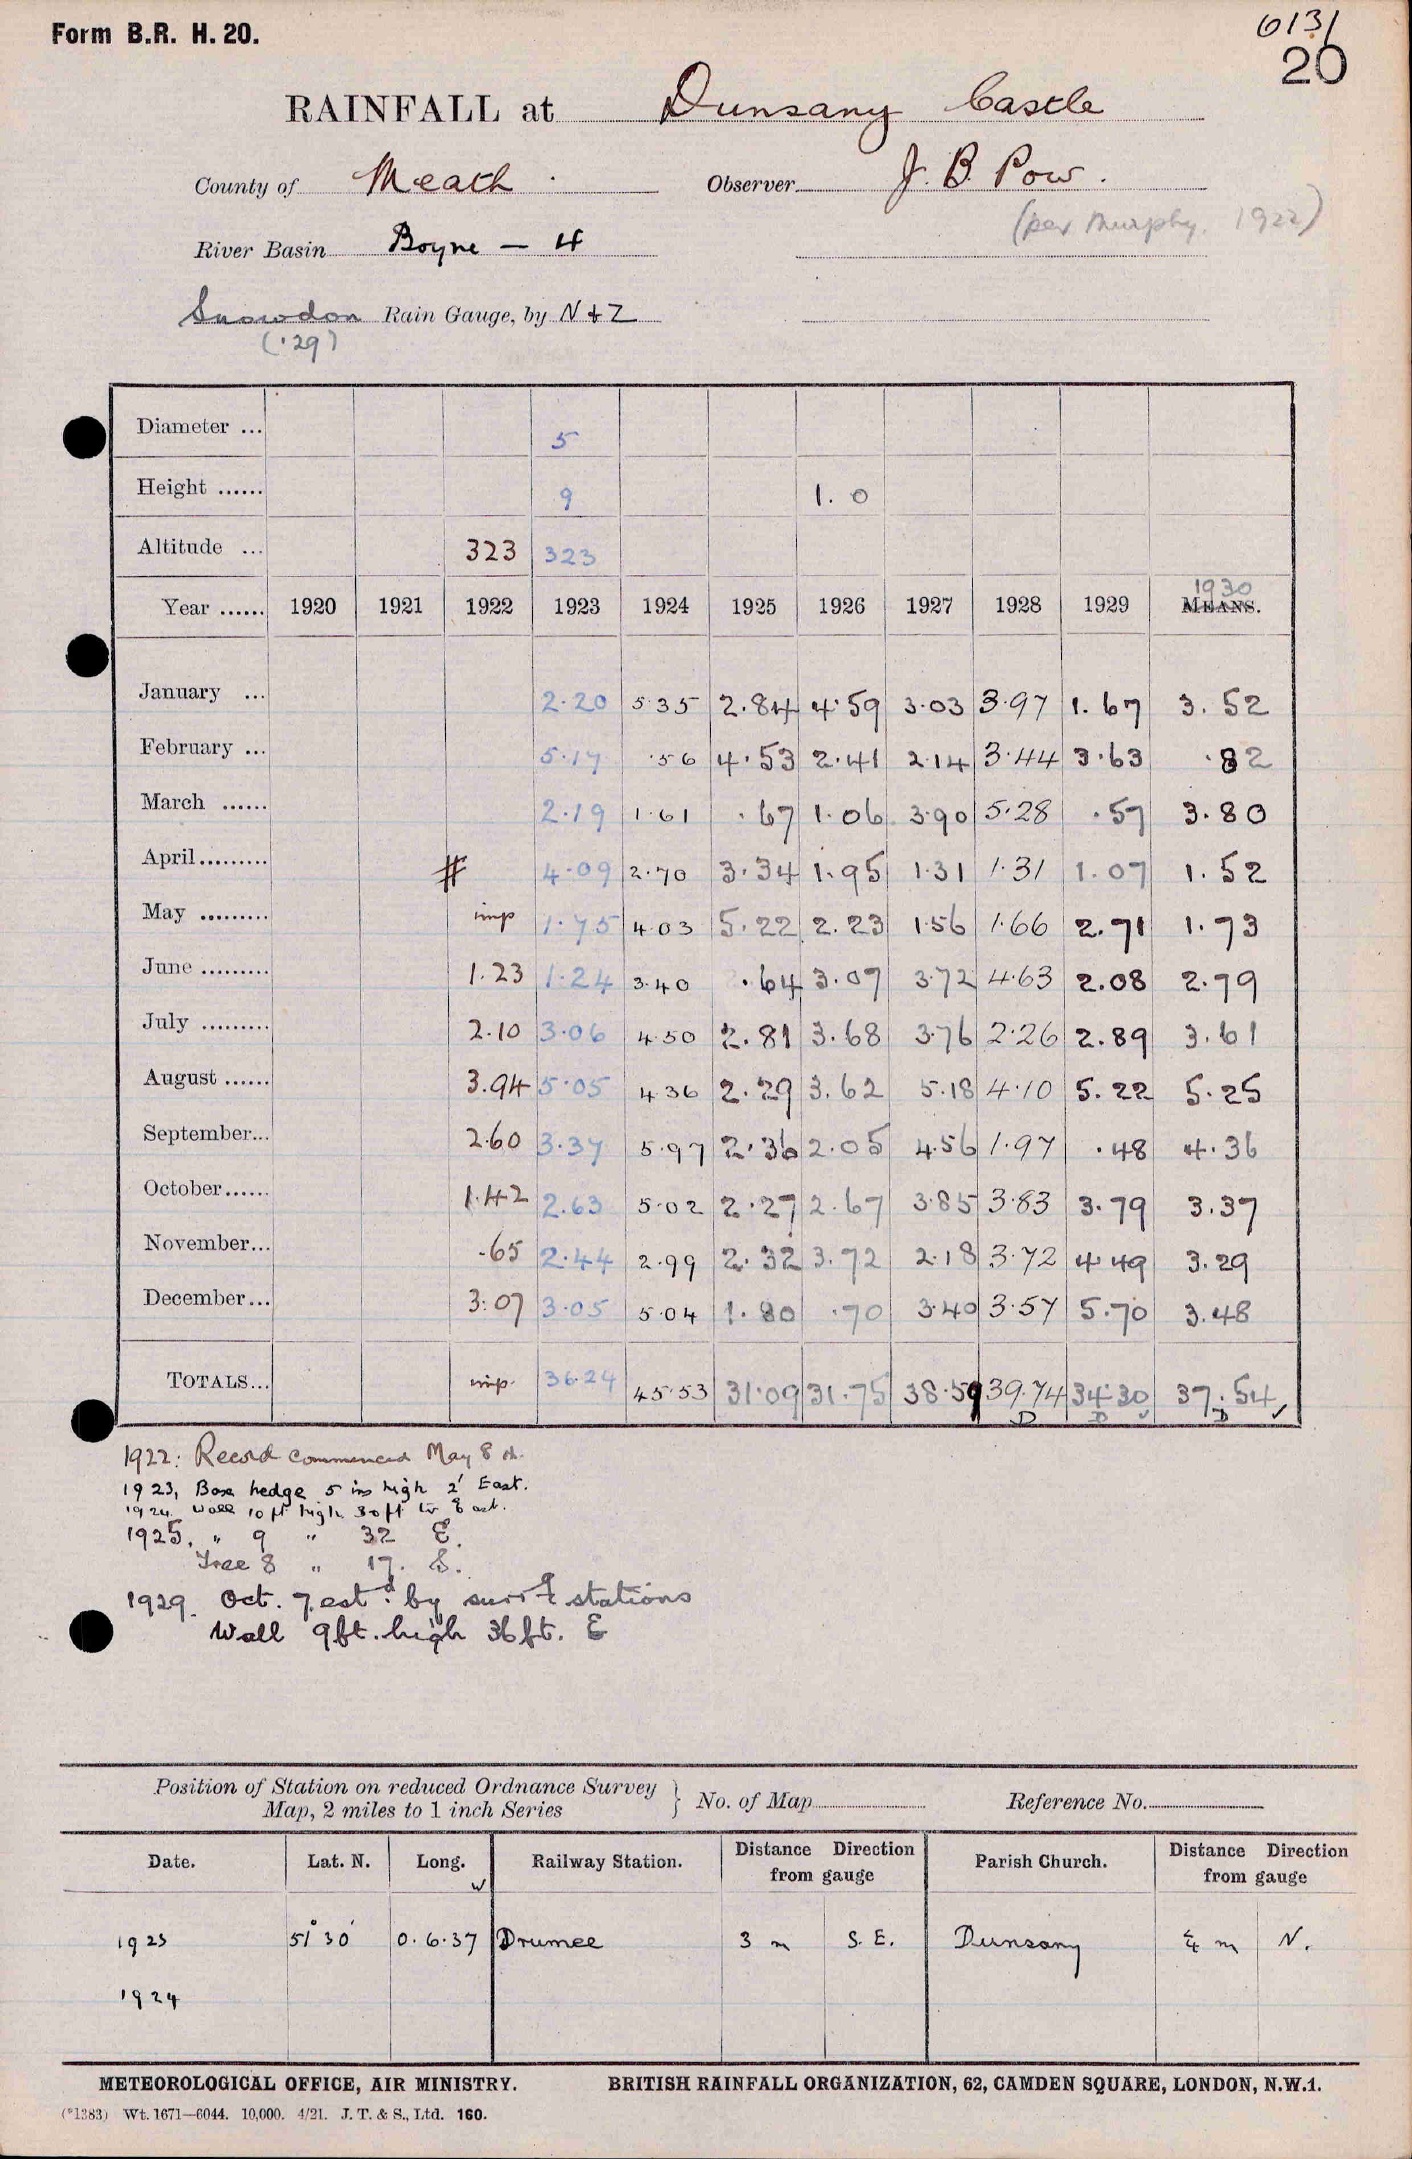 Form B.R. H. 20.
6131
20
RAINFALL at Dunsany Castle
County of Meath . Observer J. B. Pow.
(per Murphy. 1922)
River Basin Boyne — 4
Snowdon Rain Gauge, by N & Z
('29)
Diameter ... 5
Height ...... 9 1. 0
Altitude ... 323 323
Year ...... 1920 1921 1922 1923 1924 1925 1926 1927 1928 1929 1930 MEANS.
January ... 2.20 5.35 2.84 4.59 3.03 3.97 1.67 3.52
February ... 5.17 .56 4.53 2.41 2.14 3.44 3.63 .82
March ...... 2.19 1.61 .67 1.06 3.90 5.28 .57 3.80
April......... # 4.09 2.70 3.34 1.95 1.31 1.31 1.07 1.52
May ......... imp 1.75 4.03 5.22 2.23 1.56 1.66 2.71 1.73
June ......... 1.23 1.24 3.40 .64 3.07 3.72 4.63 2.08 2.79
July ......... 2.10 3.06 4.50 2.81 3.68 3.76 2.26 2.89 3.61
August ...... 3.94 5.05 4.36 2.29 3.62 5.18 4.10 5.22 5.25
September... 2.60 3.37 5.97 2.36 2.05 4.56 1.97 .48 4.36
October...... 1.42 2.63 5.02 2.27 2.67 3.85 3.83 3.79 3.37
November... .65 2.44 2.99 2.32 3.72 2.18 3.72 4.49 3.29
December... 3.07 3.05 5.04 1.80 .70 3.40 3.57 5.70 3.48
TOTALS... imp. 36.24 45.53 31.09 31.75 38.59 39.74 34.30 37.54 ✓
D D ✓ D
1922: Record commenced May 8th.
1923, Box hedge 5 ins high 2' East.
1924 Wall 10 ft high 30 ft to East.
1925. " 9 " 32 E.
Tree 8 " 17. S.
1929. Oct. 7 estd. by surrg stations
Wall 9ft. high 36ft. E
Position of Station on reduced Ordnance Survey
Map, 2 miles to 1 inch Series } No. of Map Reference No.
Date. Lat. N. Long. W Railway Station. Distance Direction from gauge Parish Church. Distance Direction from gauge
1923 51° 30' 0.6.37 Drumee 3 m S. E. Dunsany ¼ m N.
1924
METEOROLOGICAL OFFICE, AIR MINISTRY. BRITISH RAINFALL ORGANIZATION, 62, CAMDEN SQUARE, LONDON, N.W.1.
(*1383) Wt. 1671—6044. 10,000. 4/21. J. T. & S., Ltd. 160.